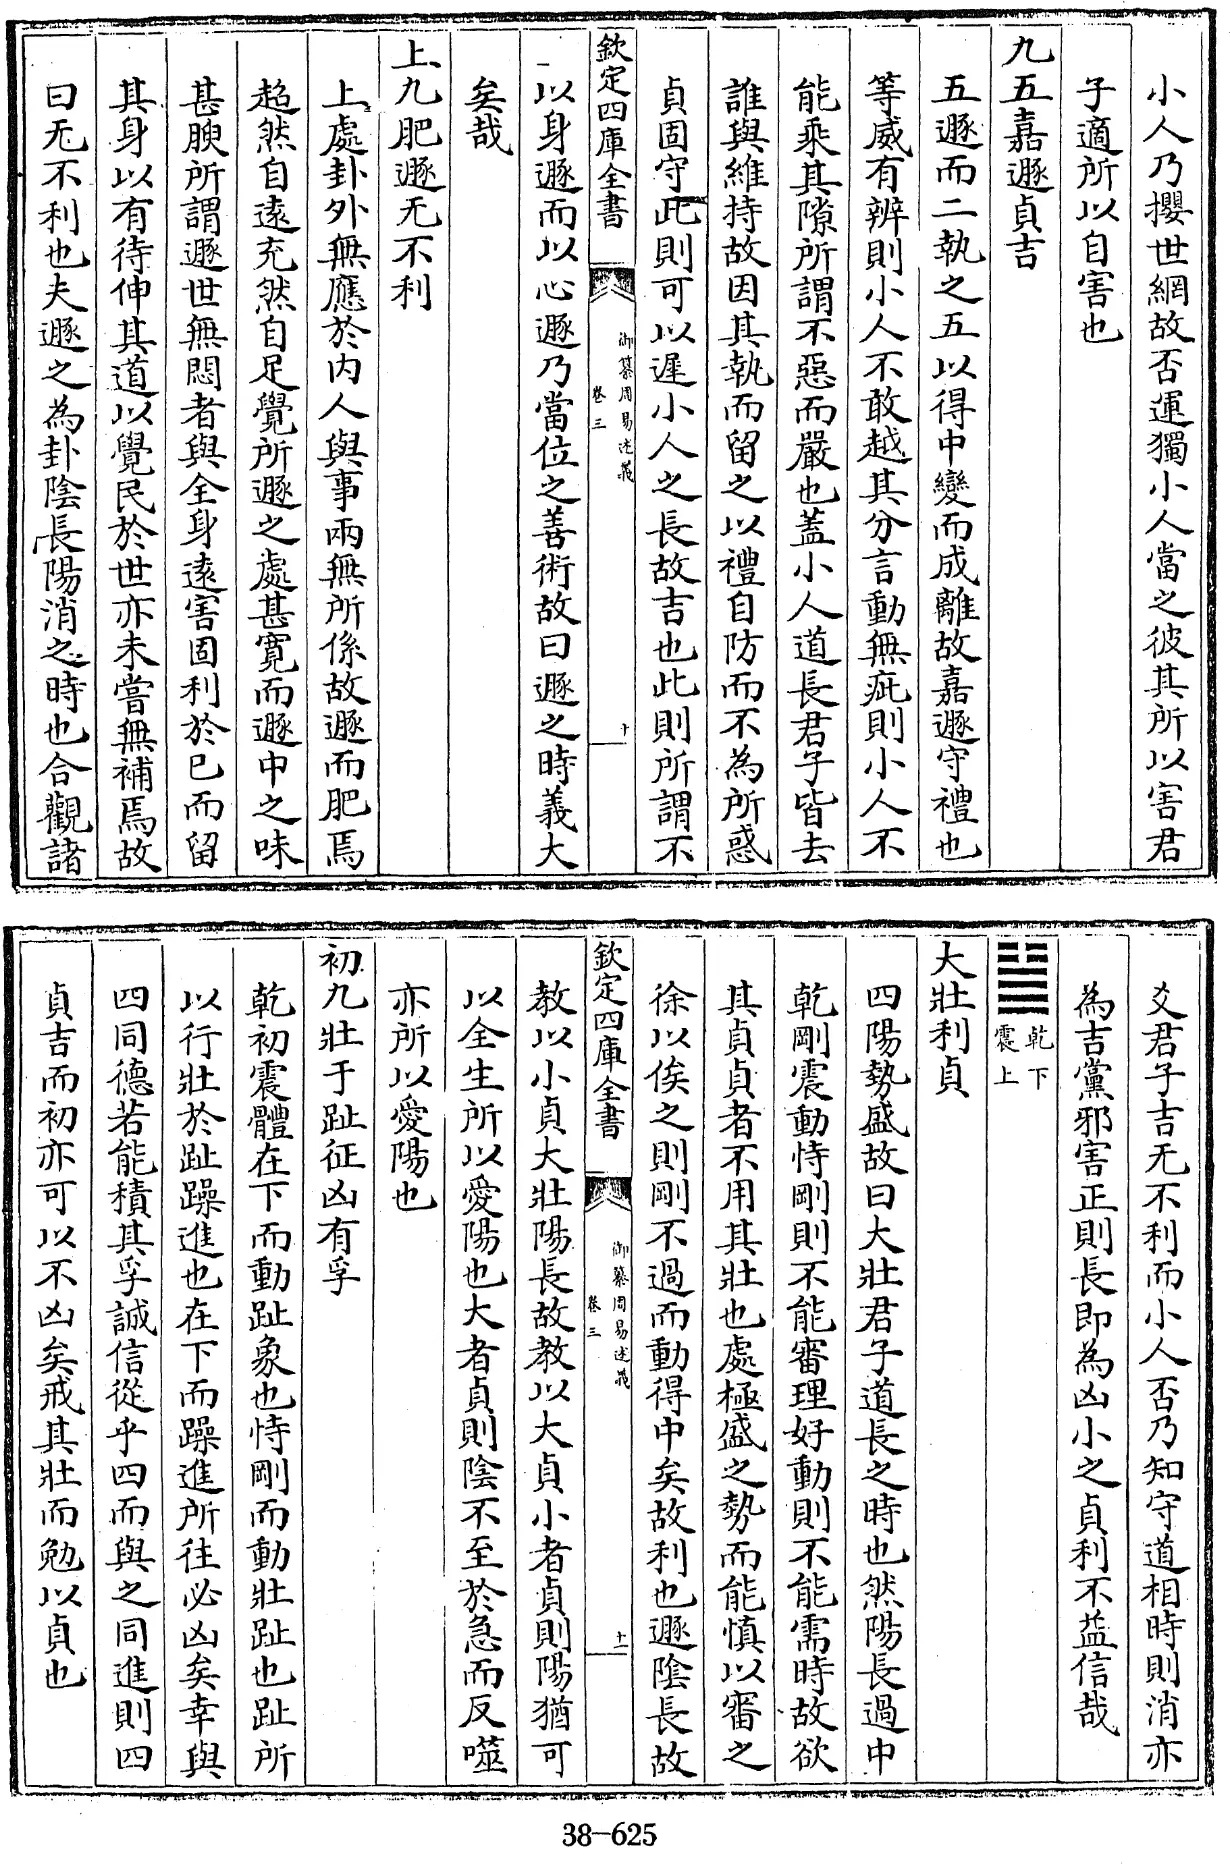 小人乃攖世網故否運獨小人當之彼其所以害君
子適所以自害也
九五嘉遯貞吉
五遯而二執之五以得中變而成離故嘉遯守禮也
等威有辨則小人不敢越其分言動無疵則小人不
能乘其隙所謂不惡而嚴也蓋小人道長君子皆去
誰與維持故因其執而留之以禮自防而不為所惑
貞固守此則可以遲小人之長故吉也此則所謂不
欽定四庫全書
御纂周易述義
卷三
十
以身遯而以心遯乃當位之善術故曰遯之時義大
矣哉
上九肥遯无不利
上處卦外無應於內人與事兩無所係故遯而肥焉
超然自遠充然自足覺所遯之處甚寬而遯中之味
甚腴所謂遯世無悶者與全身遠害固利於已而留
其身以有待伸其道以覺民於世亦未嘗無補焉故
曰无不利也夫遯之為卦陰長陽消之時也合觀諸
爻君子吉无不利而小人否乃知守道相時則消亦
為吉黨邪害正則長即為凶小之貞利不益信哉
乾下
震上
大壯利貞
四陽勢盛故曰大壯君子道長之時也然陽長過中
乾剛震動恃剛則不能審理好動則不能需時故欲
其貞貞者不用其壯也處極盛之勢而能慎以審之
徐以俟之則剛不過而動得中矣故利也遯陰長故
欽定四庫全書
御纂周易述義
卷三
十一
教以小貞大壯陽長故教以大貞小者貞則陽猶可
以全生所以愛陽也大者貞則陰不至於急而反噬
亦所以愛陽也
初九壯于趾征凶有孚
乾初震體在下而動趾象也恃剛而動壯趾也趾所
以行壯於趾躁進也在下而躁進所往必凶矣幸與
四同德若能積其孚誠信從乎四而與之同進則四
貞吉而初亦可以不凶矣戒其壯而勉以貞也
38-625